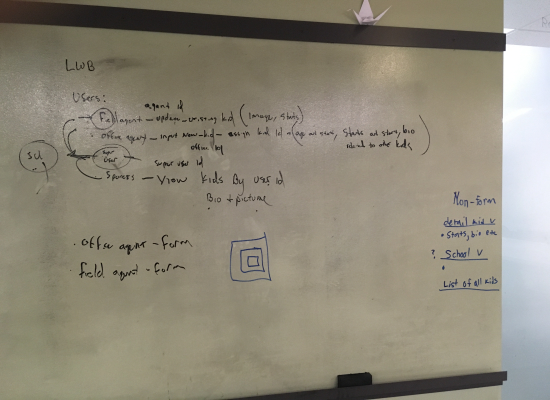 LWB
Users:
agent id
Field agent - update - existing kid (Image, Stats)
office agent - input new kid - assign kid id - (
Stats at store, bio
office id
SU
super user
super user id
Sponsors - View kids By user id
Bio + picture
• office agent - form
• field agent - form
Non-form
detail kid v
• Stats, bio etc
? School v
•
List of all kids